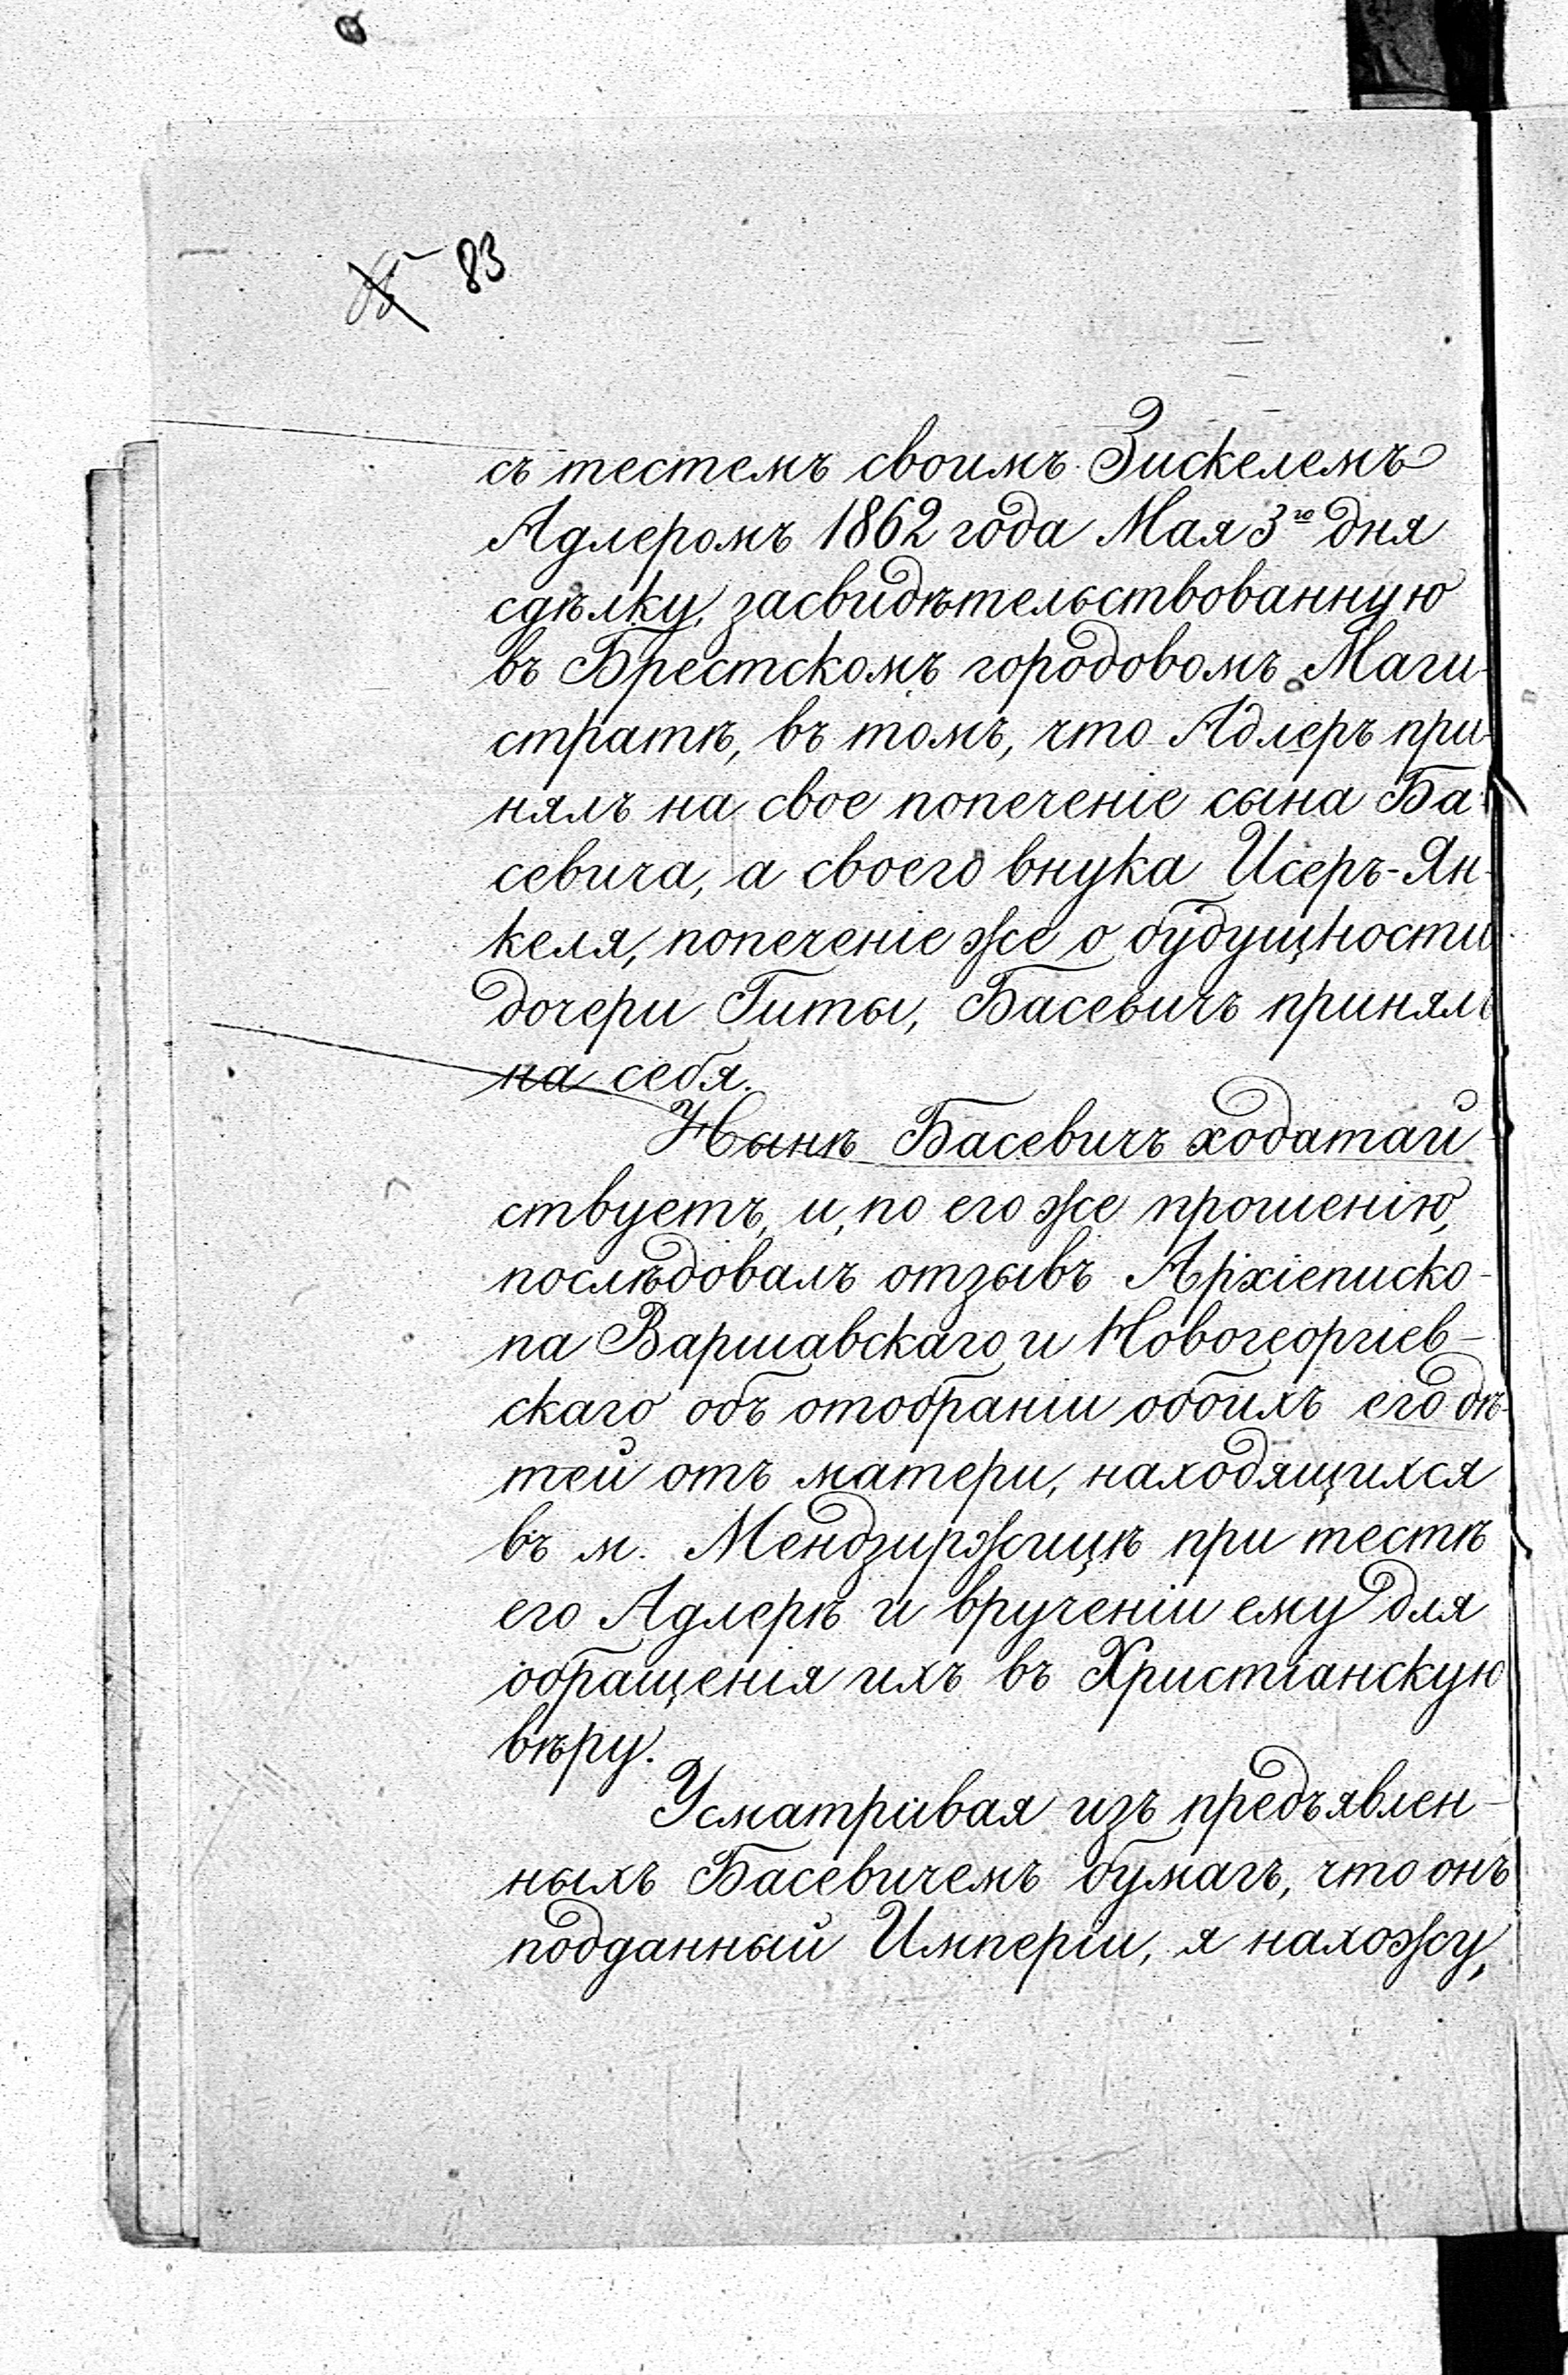 83
съ тестемъ своимъ Зискелемъ
Адлеромъ 1862 года Мая 3го дня
сдѣлку, засвидѣтельствованную
въ Брестскомъ городовомъ Маги-
стратѣ, въ томъ, что Адлеръ при-
нялъ на свое попеченіе сына Ба-
севича, а своего внука Исеръ-Ян-
келя, попеченіе же о будущности
дочери Гиты, Басевичъ принялъ
на себя.
Нынѣ Басевичъ ходатай-
ствуетъ, и, по его же прошенію,
послѣдовалъ отзывъ Архіеписко-
па Варшавскаго и Новогеоргіев-
скаго объ отобраніи обоихъ его дѣ-
тей отъ матери, находящихся
въ м. Мендзиржицѣ при тестѣ
его Адлерѣ и врученіи ему для
обращенія ихъ въ Христіанскую
вѣру.
Усматривая изъ предъявлен-
ныхъ Басевичемъ бумагъ, что онъ
подданный Имперіи, я нахожу,